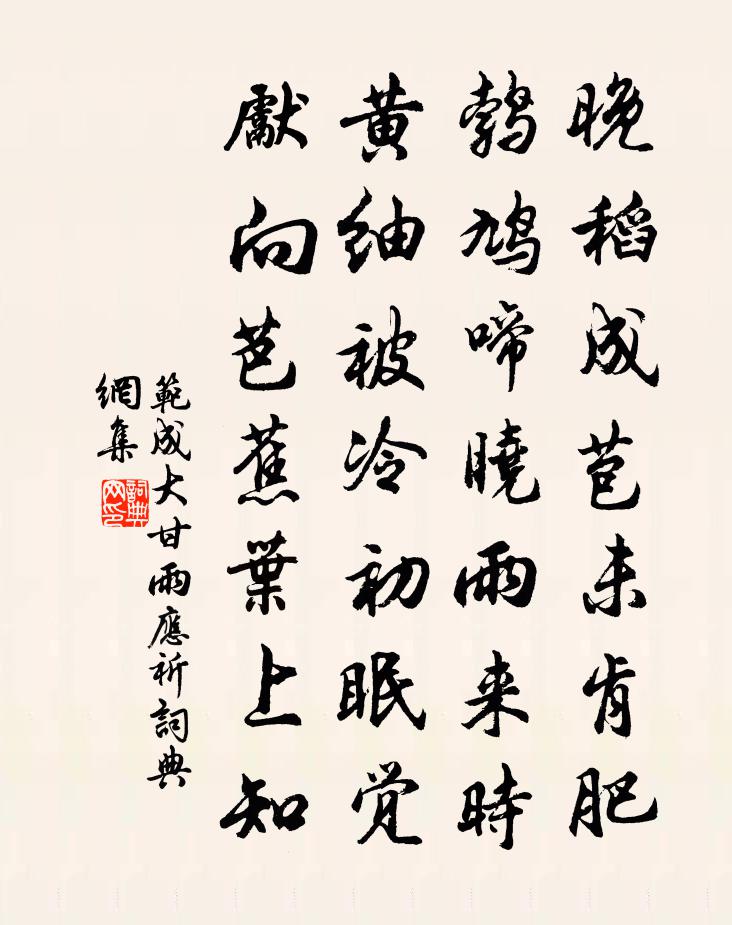 晚稻成苞未肯肥
鵓鳩啼曉雨来時
黄紬被冷初眠觉
獻向芭蕉葉上知
範成大甘雨應祈詞典
網集
詞典
网印